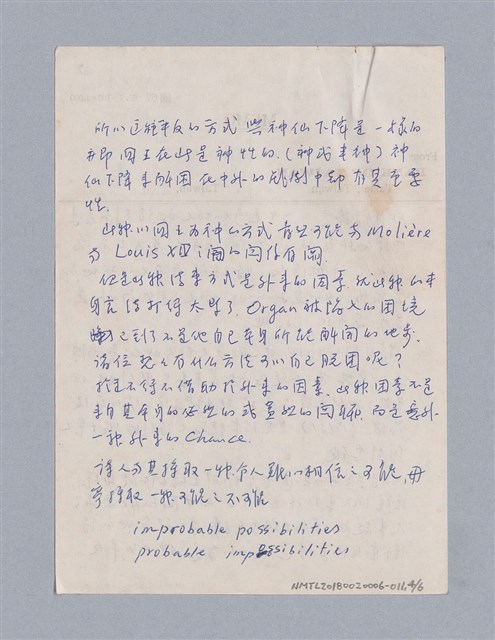 所以這種平反的方式與神仙下降是一樣的
亦即國王在此是神性的.(神或半神)神
仙下降來解困在中外的戲劇中都有其重要
性.
此種以國王為神的方式首與可能与Molière
与 Louis XIV 之間的關係有關.
但是此種結束方式是外來的因素 就此種的本
身言 結打得太緊了. Organ 被陷入的困境
已到了不是他自己本身所能解開的地步.
諸位想々有什么方法可以自己脫困呢?
於是不得不借助於外來的因素. 此種因素不是
來自其本身的必然的或蓋然的關聯. 而是意外
一種外來的 Chance.
詩人與其採取一種令人難以相信之可能, 毋
寧採取一種可能之不可能
improbable possibilities
probable impossibilities
NMTL20180020006-011,4/6